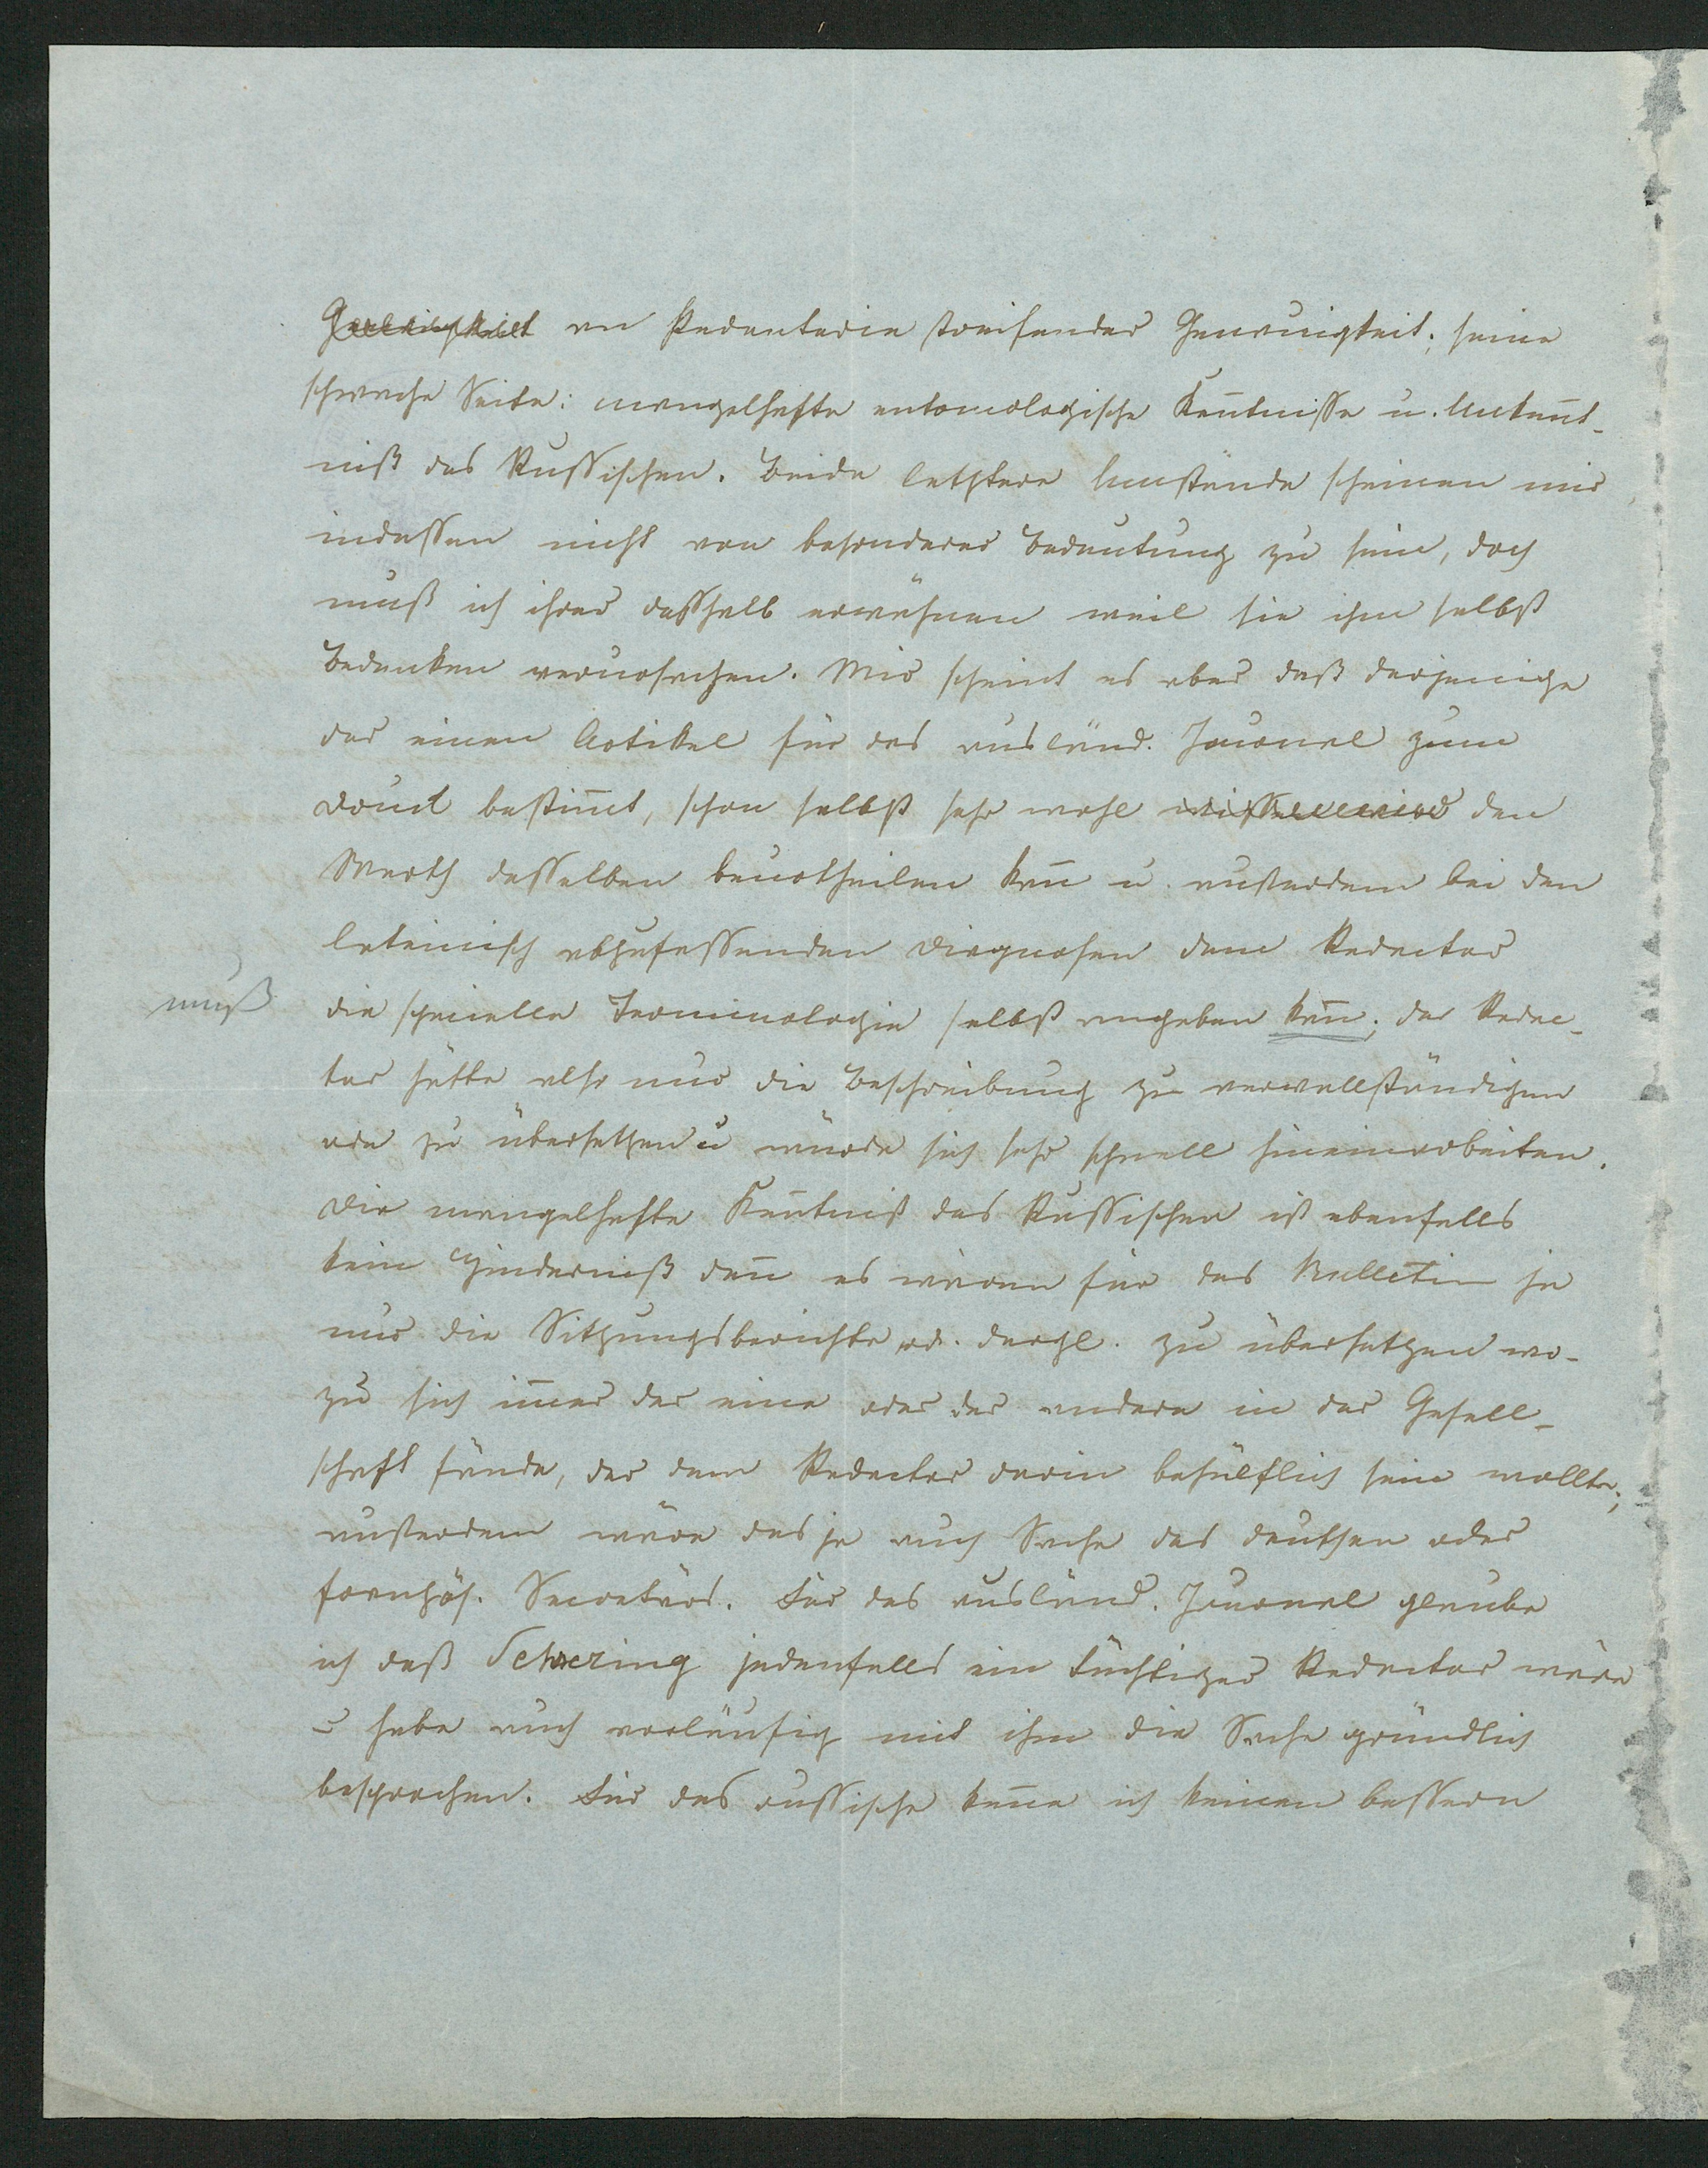 an Pedanterie streifender Genauigkeit; seine
schwache Seite: mangelhafte entomologische Kentnisse u. Unkent-
niß des Russischen. Beide letztere Umstände scheinen mir
indessen nicht von besonderer Bedeutung zu sein, doch
muß ich ihrer deßhalb erwähnen weil sie ihm selbst
Bedenken verursachen. Mir scheint es aber daß derjenige
der einen Artikel für das ausländ. Journal zum
Druck bestimt, schon selbst sehr wohl den
Werth desselben beurtheilen kan u. außerdem bei den
lateinisch abzufassenden Diagnosen dem Redactor
muß die specielle Terminologie selbst angeben kan; der Redac-
tor hätte also nur die Beschreibung zu vervollständigen
oder zu übersetzen u würde sich sehr schnell hineinarbeiten.
Die mangelhafte Kentniß des Russischen ist ebenfalls
kein Hinderniß den es wären für das Bulletin ja
nur die Sitzungsberichte od. dergl. zu übersetzen wo-
zu sich imer der eine oder der andere in der Gesell-
schaft fände, der dem Redactor darin behülflich sein wollte;
außerdem wäre das ja auch Sache des deutschen oder
französ. Secretärs. Für das ausländ. Journal glaube
ich daß jedenfalls ein tüchtiger Redactor wäre
u habe auch vorläufig mit ihm die Sache gründlich
besprochen. Für das russische kene ich keinen bessern